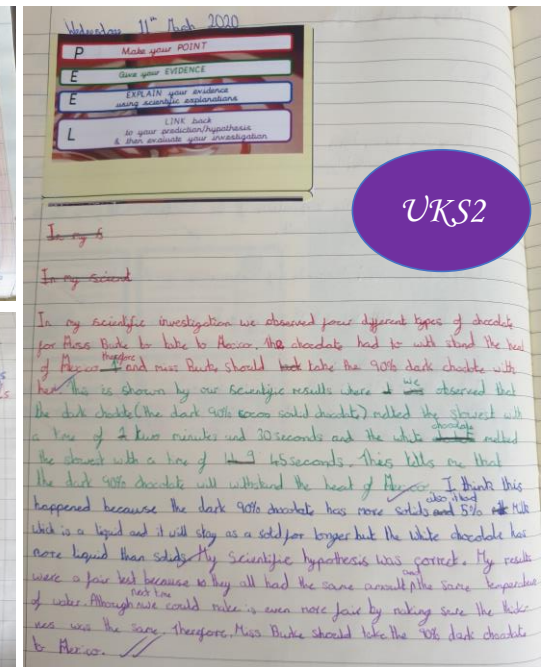 Wednesday 11th March 2020
P Make your POINT
E Give your EVIDENCE
E EXPLAIN your evidence
using scientific explanations
L LINK back
to your prediction/hypothesis
& then evaluate your investigation
UKS2
In my s
In my scient
In my scientific investigation we observed four different types of chocolate
for Miss Burke to take to Mexico. The chocolate had to with stand the heat
of Mexico therefore and miss Burke should take the 90% dark choclate with
her. This is shown by our scientific results where we observed that
the dark choclate (the dark 90% cocoa solid choclate) melted the slowest with
a time of 2 two minutes and 30 seconds and the white chocolate melted
the slowest with a time of 45 seconds. This tells me that
the dark 90% chocolate will withstand the heat of Mexico. I think this
happened because the dark 90% chocolate has more solids and also it had 5% Milk
which is a liquid and it will stay as a solid for longer but the white chocolate has
more liquid than solids. My scientific hypothesis was correct. My results
were a fair test because they all had the same amount and the same temperature
of water. Although next time we could make is even more fair by making sure the thick
nes was the same. Therefore, Miss Burke should take the 90% dark chocolate
to Mexico.